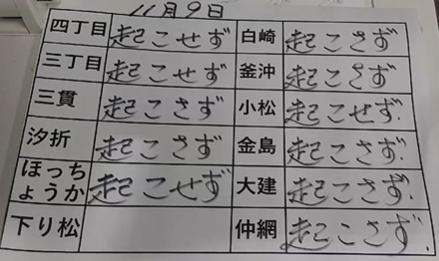 11月9日
四丁目 起こせず 白崎 起こさず
三丁目 起こせず 釜沖 起こさず
三貫 起こさず 小松 起こせず.
汐折 起こさず 金島 起こさず.
ほっちょうか 起こせず 大建 起こさず.
下り松 仲網 起こさず.